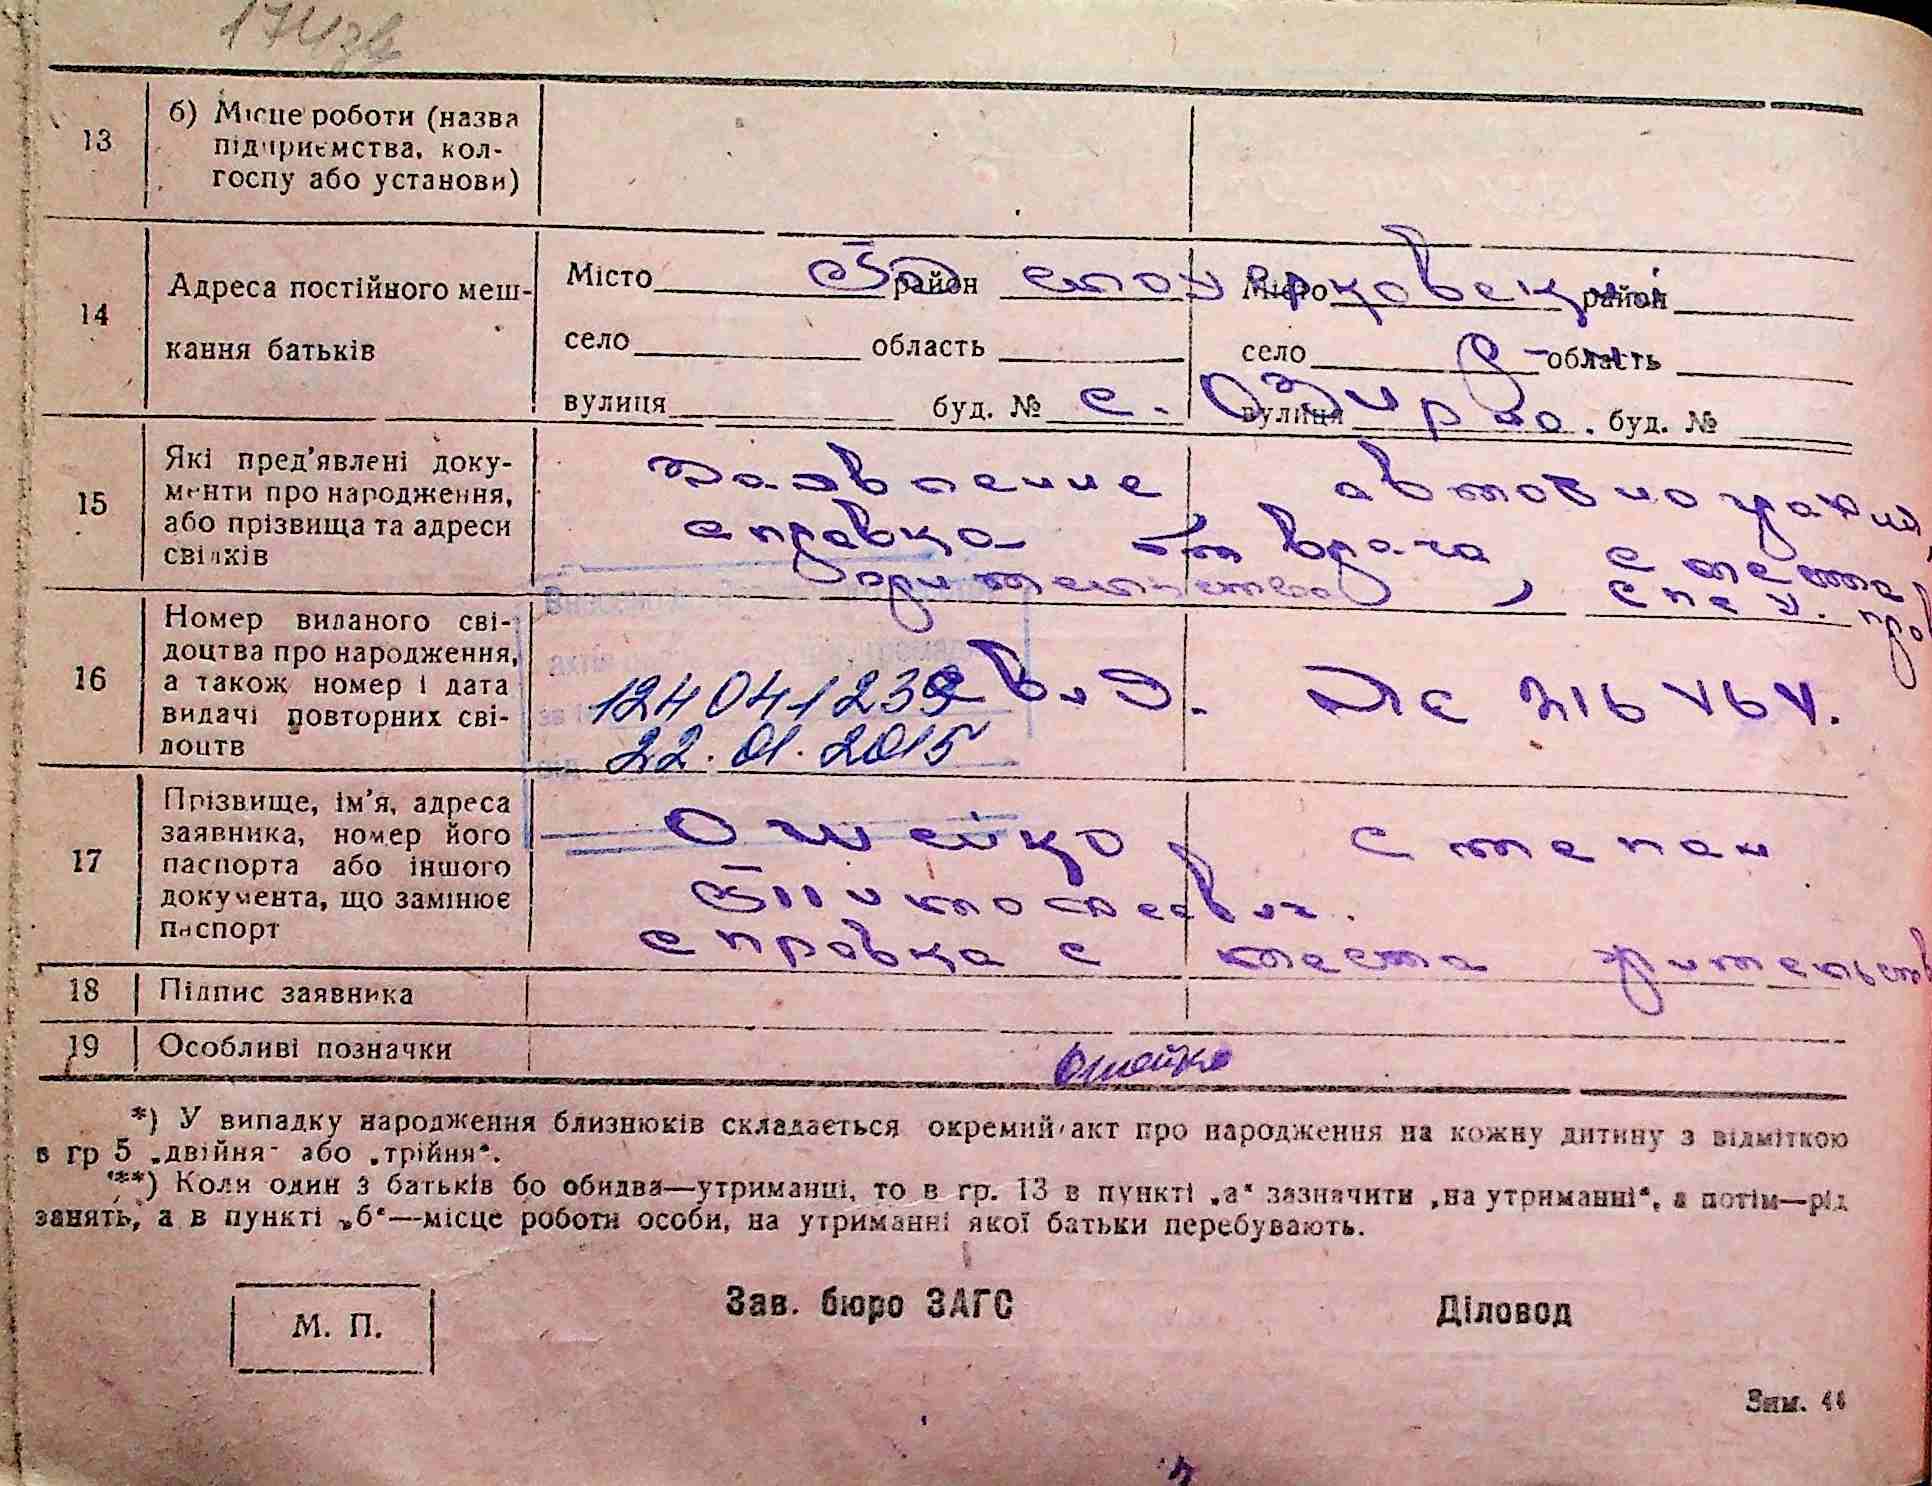 174 зв
13 б) Місце роботи (назва
підприємства, кол-
госпу або установи)
14 Адреса постійного меш-
кання батьків
Місто район Місто район
Белоцерковский
село область село область
р-н
вулиця буд. № вулиця буд. №
с.
15 Які пред'явлені доку-
менти про народження,
або прізвища та адреси
свідків
Заявление, автобиография,
справка от врача, с места
жительства, спец. пров
16 Номер виданого сві-
доцтва про народження,
а також номер і дата
видачі повторних сві-
доцтв
124041239
22.01.2015
свид.
17 Прізвище, ім'я, адреса
заявника, номер його
паспорта або іншого
документа, що замінює
паспорт
Ошейко Степан
справка с места жительств
18 Підпис заявника
19 Особливі позначки
Ошейко
*) У випадку народження близнюків складається окремий акт про народження на кожну дитину з відміткою
в гр 5 „двійня" або „трійня".
**) Коли один з батьків бо обидва—утриманці, то в гр. 13 в пункті „а" зазначити „на утриманні", а потім—рід
занять, а в пункті „б"—місце роботи особи, на утриманні якої батьки перебувають.
М. П.
Зав. бюро ЗАГС Діловод
Зам. 44